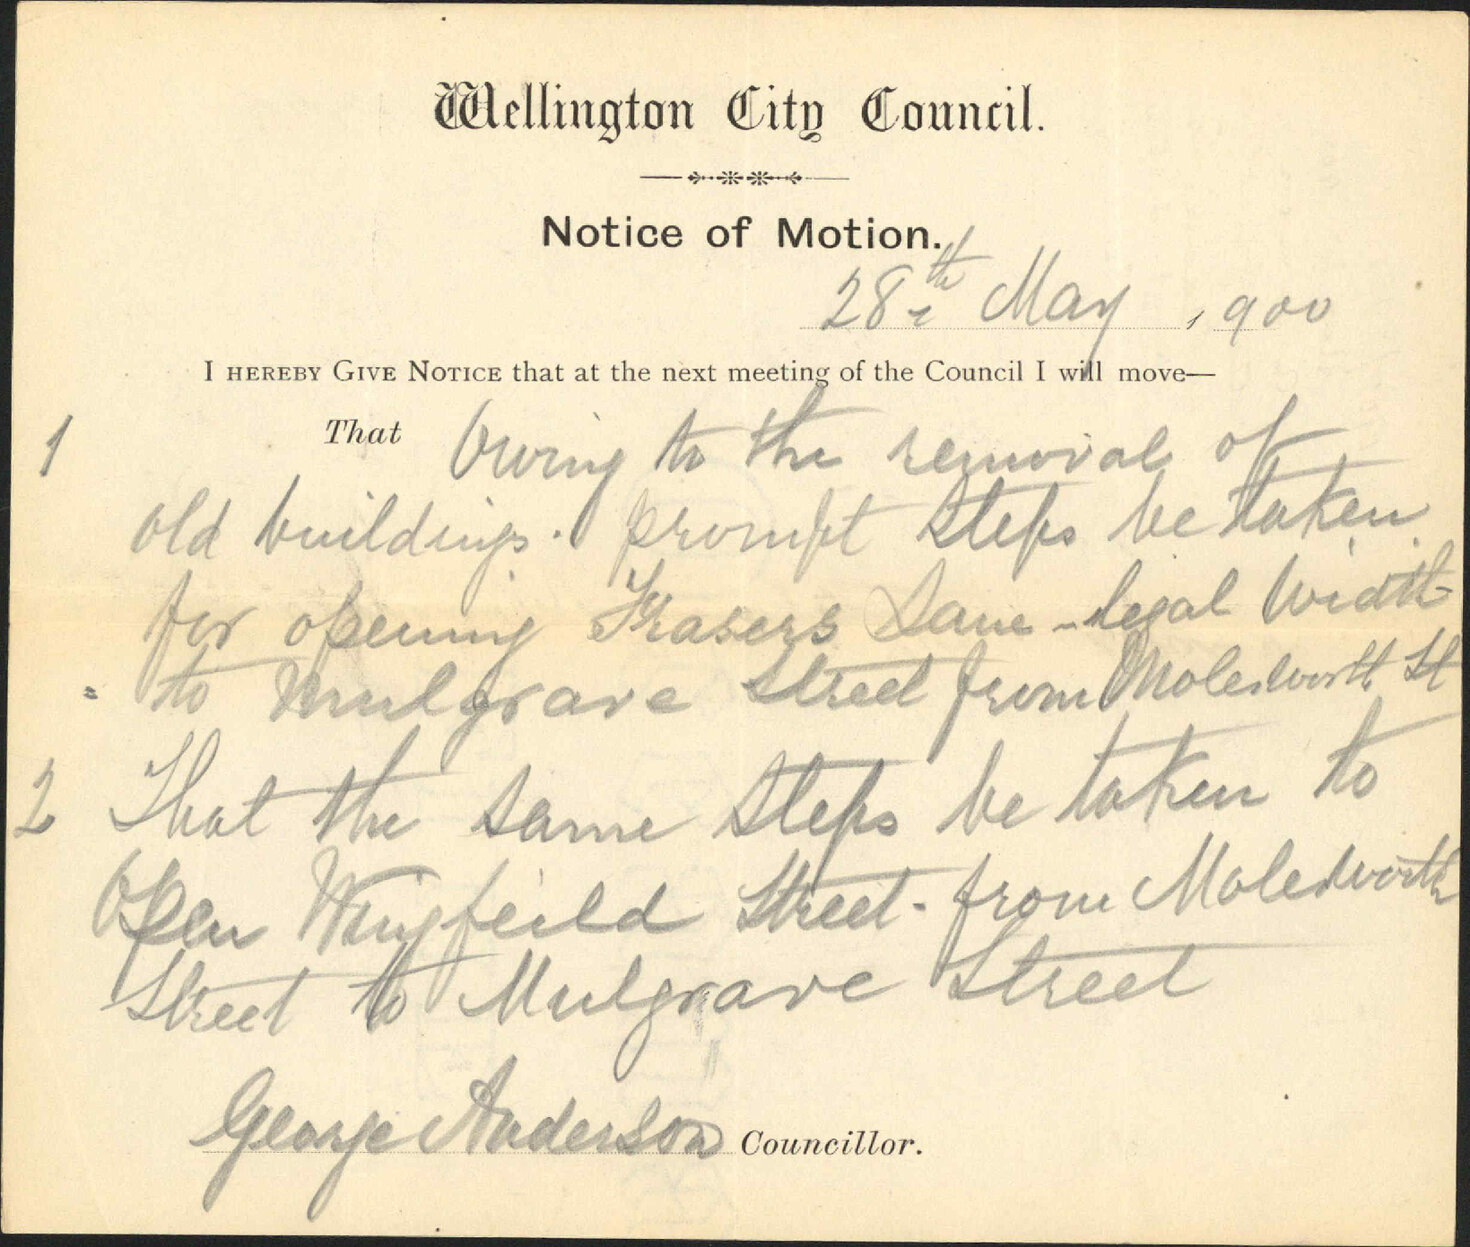 Wellington City Council.
Notice of Motion.
28th May, 1900
I HEREBY GIVE NOTICE that at the next meeting of the Council I will move—
1 That Owing to the removal of
old buildings. prompt steps be taken
for opening Frasers Lane - legal Width
to Mulgrave Street from Molesworth St
2 That the same steps be taken to
Open Wingfeild Street - from Molesworth
Street to Mulgrave Street
George Anderson Councillor.